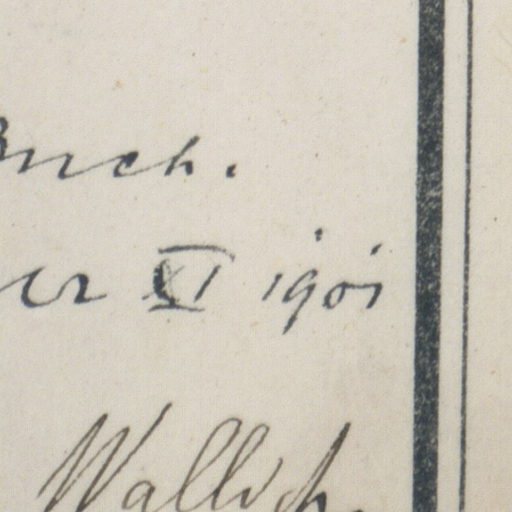 Buch.
er XI 1901
Wallich.